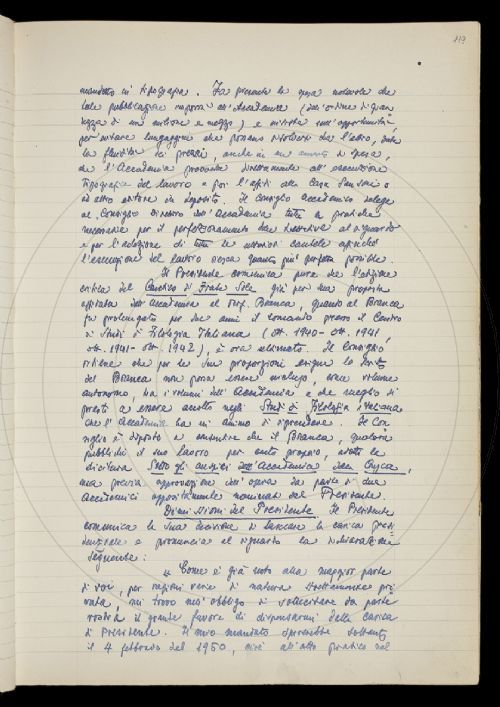 119
mandato in tipografia. Fa presente la spesa notevole che
tale pubblicazione importa all'Accademia (dell'ordine di gran
dezza di un milione e mezzo) e insiste sull'opportunità,
per evitare lungaggini che possono risolversi da l'altro, data
la fluidità dei prezzi, anche in un aumento di spesa,
che l'Accademia provveda direttamente all'esecuzione
tipografica del lavoro e poi l'affidi alla Casa Sansoni o
ad altro editore in deposito. Il Consiglio Accademico delega
al Consiglio Direttivo dell'Accademia tutte le pratiche
necessarie per il perfezionamento delle trattative al riguardo
e per l'adozione di tutte le necessarie cautele affinché
l'esecuzione del lavoro riesca quanto più perfetta possibile.
Il Presidente comunica pure che l'edizione
critica del Cantico di Frate Sole già per sua proposta
affidata dall'Accademia al Prof. Branca, quando al Branca
fu prolungato per due anni il comando presso il Centro
di Studi di Filologia Italiana (ott. 1940 - ott. 1941,
ott. 1941 - ott. 1942), è ora ultimata. Il Consiglio,
ritiene che per le sue proporzioni esigue lo scritto
del Branca non possa essere incluso, come volume
autonomo, tra i volumi dell'Accademia e che meglio si
presti a essere accolto negli Studi di Filologia italiana
che l'Accademia ha in animo di riprendere. Il Con
siglio è disposto a consentire che il Branca, qualora
pubblichi il suo lavoro per conto proprio, adotti la
dicitura Sotto gli auspici dell'Accademia della Crusca,
ma previa approvazione dell'opera da parte di due
Accademici appositamente nominati dal Presidente.
Dimissioni del Presidente. Il Presidente
comunica la sua decisione di lasciare la carica presi
denziale e pronuncia al riguardo la dichiarazione
seguente:
« Come è già noto alla maggior parte
di voi, per ragioni varie di natura strettamente pri
vata, mi trovo nell'obbligo di sollecitare da parte
vostra il grande favore di dispensarmi dalla carica
di Presidente. Il mio mandato scadrebbe soltanto
il 4 febbraio del 1950, cioè all'atto pratico nel